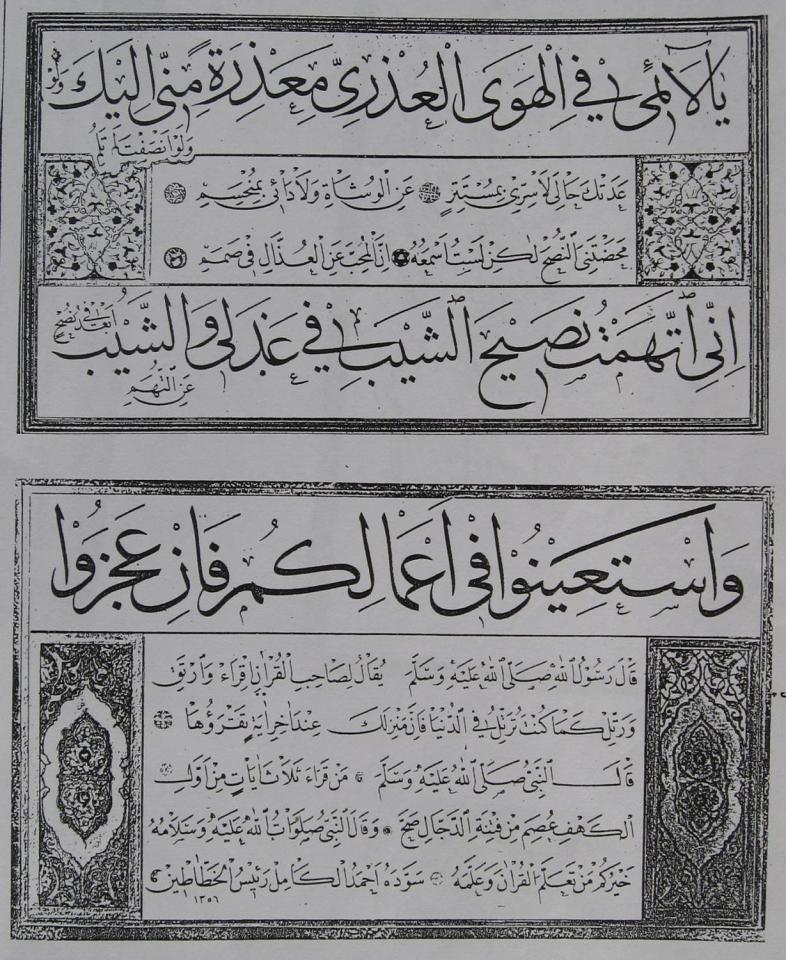 يَا لَائِمِي فِي الْهَوَى الْعُذْرِيِّ مَعْذِرَةً مِنِّي إِلَيْكَ وَلَوْ
وَلَوْ اَنْصَفْتَ لَمْ تَلُمِ
عَدَتْكَ حَالِيَ لَا سِرِّي بِمُسْتَتِرٍ عَنِ الْوُشَاةِ وَلَا دَائِي بِمُنْحَسِمِ
مَحَّضْتَنِي النُّصْحَ لٰكِنْ لَسْتُ اَسْمَعُهُ اِنَّ الْمُحِبَّ عَنِ الْعُذَّالِ فِي صَمَمِ
اِنِّي اتَّهَمْتُ نَصِيحَ الشَّيْبِ فِي عَذَلِي وَالشَّيْبُ اَبْعَدُ فِي نُصْحٍ
عَنِ التُّهَمِ
وَاسْتَعِينُوا فِي اَعْمَالِكُمْ فَاِنْ عَجَزُوا
قَالَ رَسُولُ اللّٰهِ صَلَّى اللّٰهُ عَلَيْهِ وَسَلَّمَ يُقَالُ لِصَاحِبِ الْقُرْاٰنِ اِقْرَاْ وَارْتَقِ
وَرَتِّلْ كَمَا كُنْتَ تُرَتِّلُ فِي الدُّنْيَا فَاِنَّ مَنْزِلَكَ عِنْدَ اٰخِرِ اٰيَةٍ تَقْرَؤُهَا
قَالَ النَّبِيُّ صَلَّى اللّٰهُ عَلَيْهِ وَسَلَّمَ مَنْ قَرَاَ ثَلَاثَ اٰيَاتٍ مِنْ اَوَّلِ
الْكَهْفِ عُصِمَ مِنْ فِتْنَةِ الدَّجَّالِ صَحَّ وَقَالَ النَّبِيُّ صَلَوَاتُ اللّٰهِ عَلَيْهِ وَسَلَامُهُ
خَيْرُكُمْ مَنْ تَعَلَّمَ الْقُرْاٰنَ وَعَلَّمَهُ سَوَّدَهُ اَحْمَدُ الْكَامِلُ رَئِيسُ الْخَطَّاطِينَ
١٣٥٦